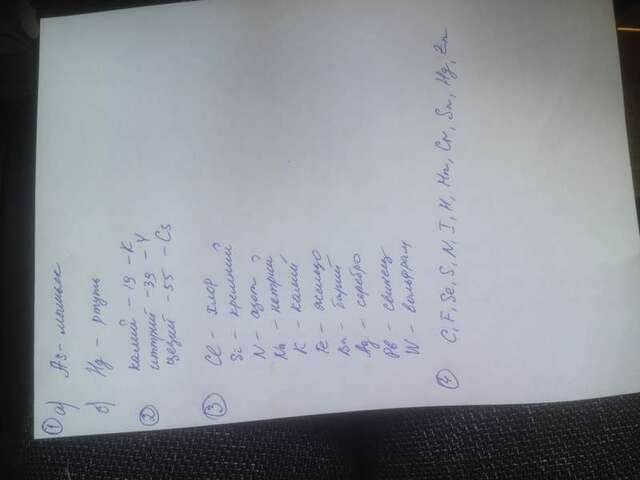 1 а) As - мышьяк
б) Hg - ртуть
2 калий - 19 - K
иттрий - 39 - Y
цезий - 55 - Cs
3 Cl - хлор
Si - кремний
N - азот
Na - натрий
K - калий
Fe - железо
Ba - барий
Ag - серебро
Pb - свинец
W - вольфрам
4 C, F, Se, S, N, I, H, Mn, Cr, Sn, Hg, Zn